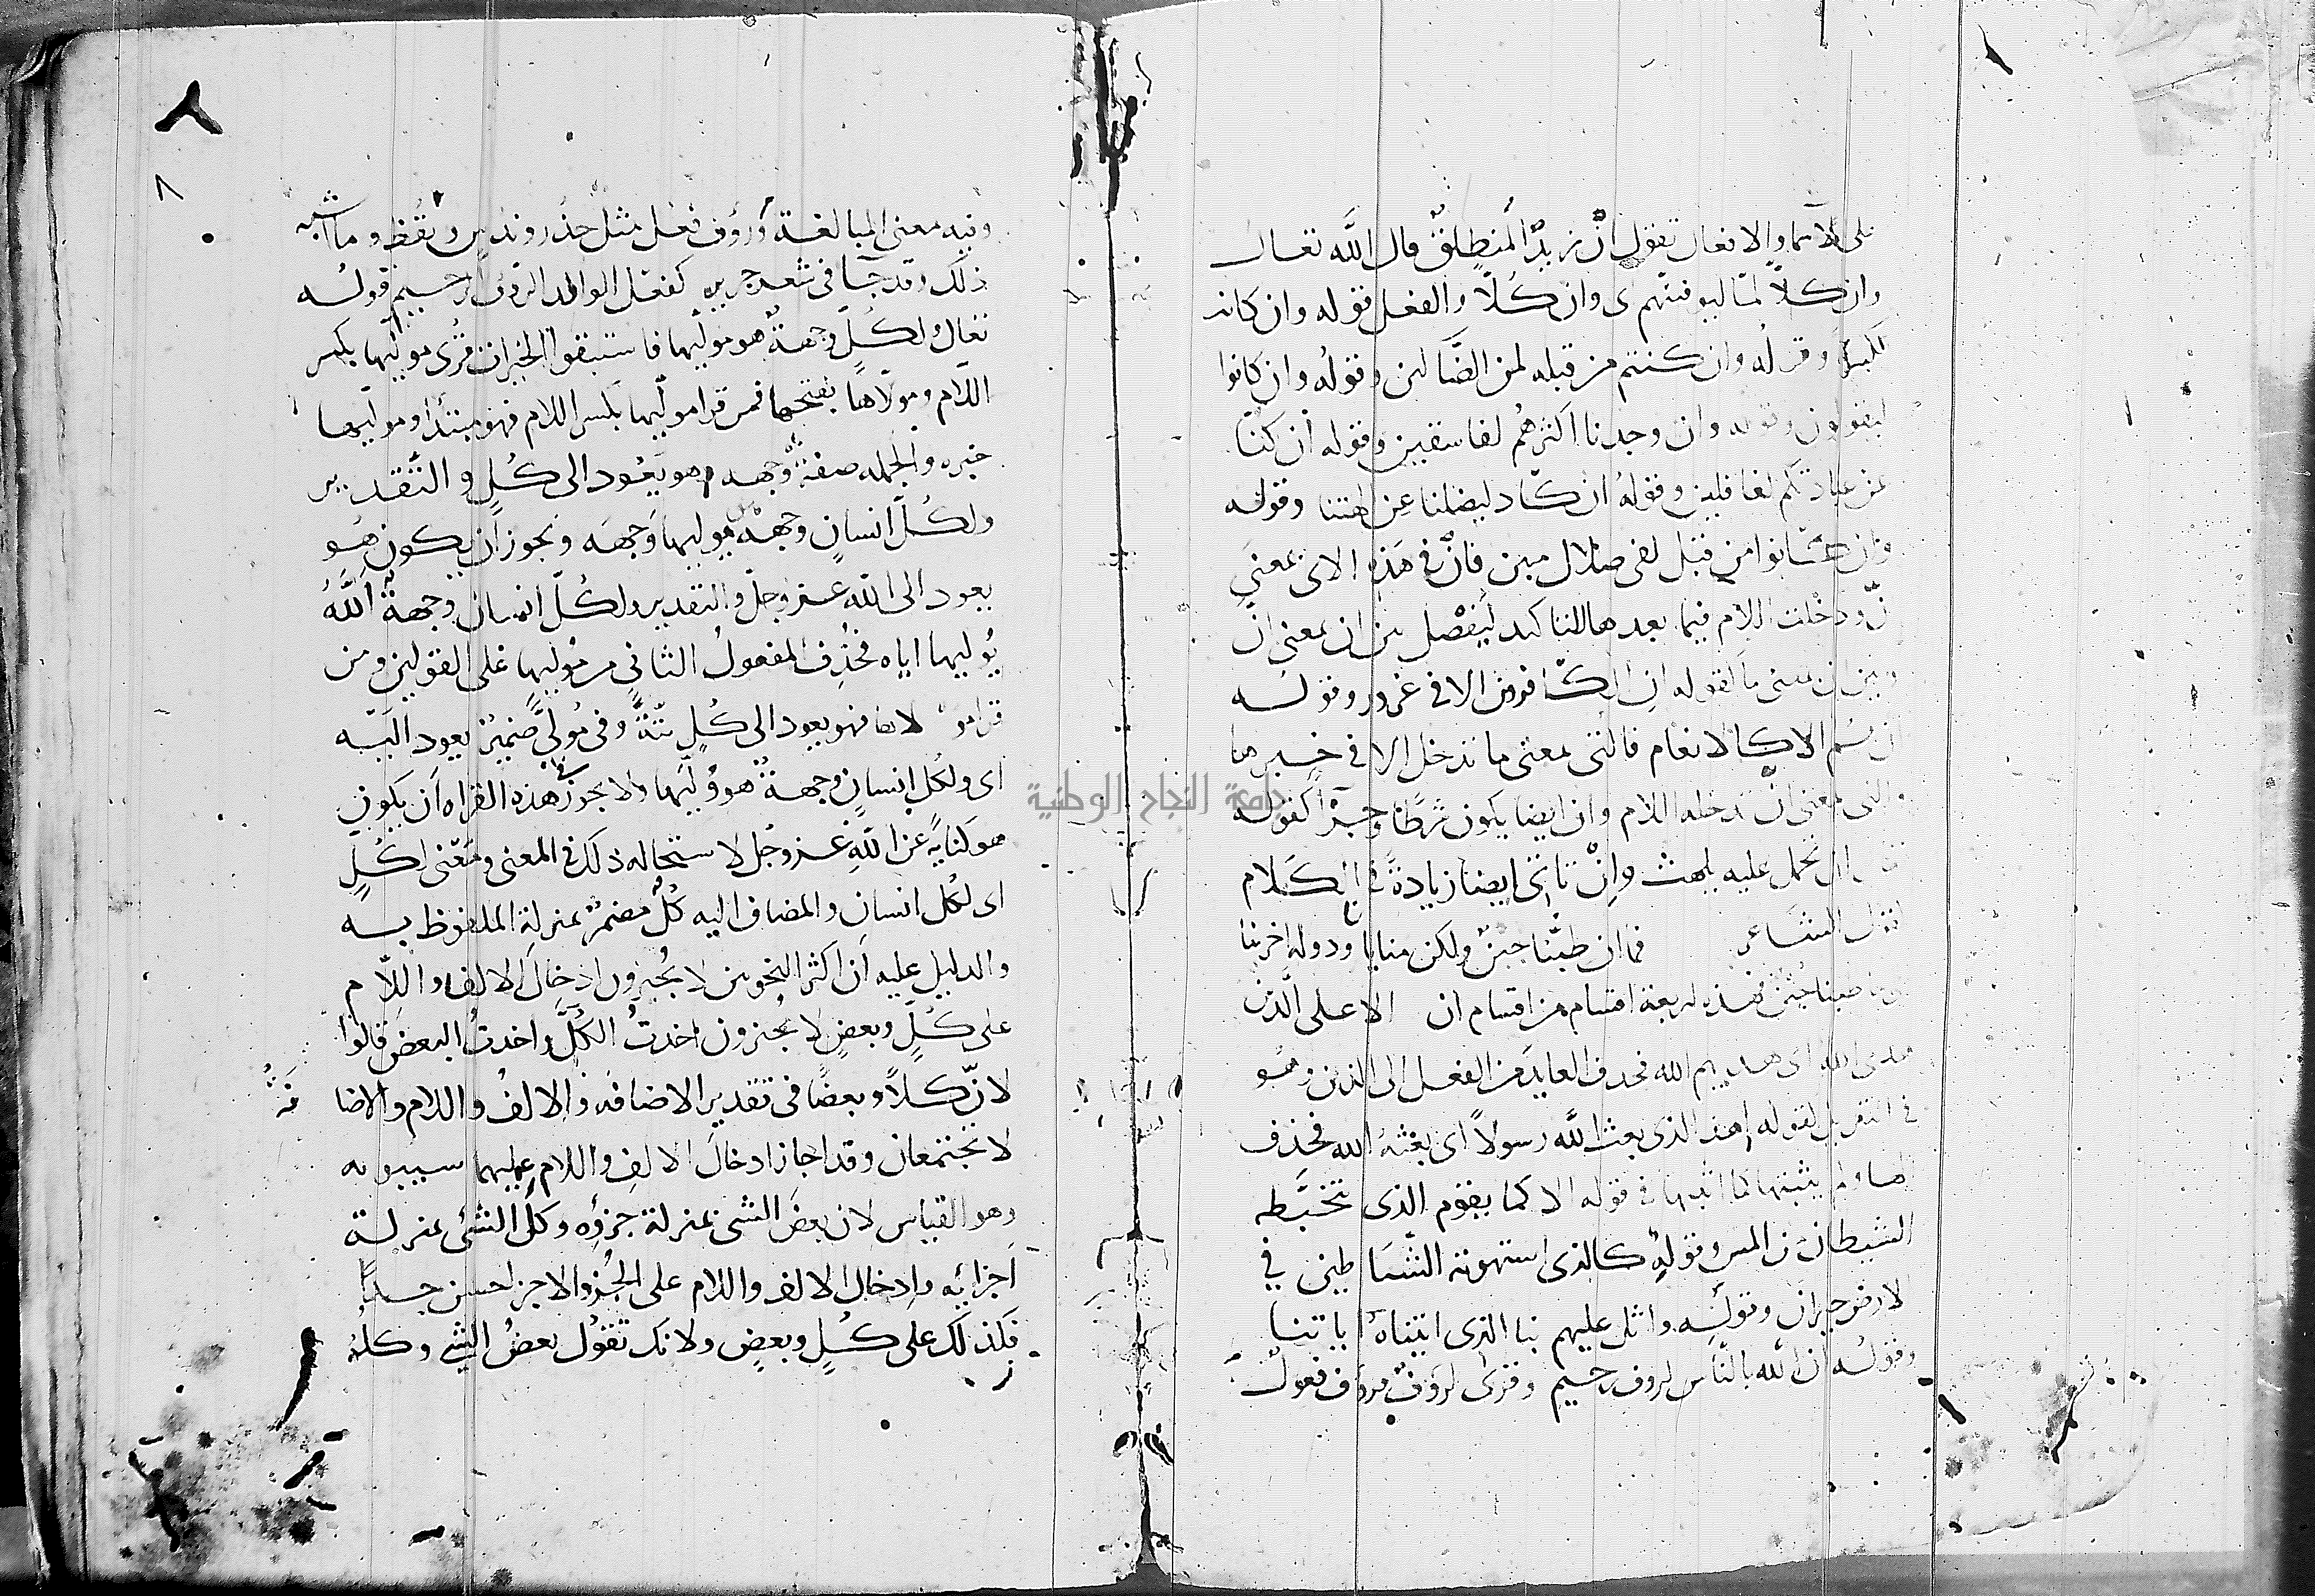 على الاسما والافعال تقول ان زيدًا لمنطلقٌ قال الله تعالى
وان كلاًّ لما ليوفينهم ى وان كُلاًّ والفعل قوله وان كانت
لكبيرة وقوله وان كنتم من قبله لمن الضَّالين وقولُه وان كانوا
ليقولون وقوله وان وجدنا اكثرهُم لفاسقين وقوله ان كنّا
عن عبادتكم لغافلين وقولهُ ان كاد ليضلنا عن الهتنا وقوله
وان كانوا من قبل لفى ضلال مبين فانّ فى هَذه الاى بمعنَى
نّ ودخلت اللام فيما بعدها للتاكيد ليَفْصل بين ان بمعنى انّ
وبين ان بمعنى ما لقوله ان الكافرون الا فى غرور وقوله
ان هُم الا كالانعام فالتى بمعنى ما تدخل الا فى خبرها
والتى بمعنى انّ تدخله اللام وان ايضا يكون شرطًا وخبرًا كقوله
ان تحمل عليه يلهث وانْ تاتى ايضا زيادةً فى الكَلام
الشاعر فما ان طبُّنا جبنٌ ولكن منايانا ودولة اخرينا
جُبْنٌ فهذه اربعة اقسام من اقسام ان الا على الَّذين
هدى الله اى هديهم الله فحذف العايد من الفعل الى الذين وهُو
فى التقدير لقوله اهذا الذى بعث الله رسولاً اى بعثهُ الله فحذف
الها ولم يثبتها كما اثبتها فى قوله الا كما يقوم الذى يتخبَّطه
الشيطان من المس وقولهُ كالذى استهوته الشَّياطين فى
الارض حيران وقولِه واتل عليهم نبا الذى اتيناهُ اياتنا
وقولُه ان الله بالنَّاس لروف رحيم وقرى لروفٌ فرؤف فعولٌ
٨
وفيه معنى المبالغة ورؤف فَعُل مثل حذر وندس ويقُظ وما اشبه
ذلك وقد جآ فى شعر جرير كفعل الوالد الرَّوف الرَّحيم قوله
تعالى ولكُلٍّ وجهةٌ هو موليها فاستبقوا الخيرات قُرى موليها بكسر
اللام ومولاها بفتحها فمن قرا موليها بكسر اللام فهو مبتدا وموليها
خبره والجمله صفةٌ وجهه وهو يعُود الى كُلٍ والتقدير
ولكُلّ انسانٍ وجهةٌ موليها وجههَ ويجوز ان يكون هُو
يعود الى الله عز وجلّ والتقدير ولكُلّ انسان وجهةٌ اللهُ
يُوليها اياه فحُذِف المفعولُ الثانى من مُوليها على القولين ومن
قرا مولاها فهو يعود الى كُلٍ ثَمَّةً وفى مُولىًّ ضميرٌ يعود اليه
اى ولكلِ انسانٍ وجهةٌ هو وُلِّيَها ولا يجوز فى هذه القراه ان يكون
هو كنايةً عن الله عز وجل لاستحاله ذلك فى المعنى ومعنى لكُلٍ
اى لكل انسان والمضاف اليه كُلٌّ مضمرٌ بمنزلة الملفوظ به
والدليل عليه ان اكثر النحويين لا يُجيزون ادخالَ الالف واللاّم
على كُلٍ وبعضٍ لا يُجيزون اخذتُ الكُلَّ واخذتُ البعضَ قالوا
لانّ كلاًّ وبعضًا فى تقدير الاضافه والالفُ واللام والاضا
فَةُ
لا يجتمعان وقد اجاز ادخالَ الالفِ واللام عليهما سيبويه
وهو القياس لان بعضَ الشى بمنزلة جزؤه وكل الشئ بمنزلة
اَجزائِه وادخال الالف واللام على الجُزو والاجزا حسن جدًّا
فكذلك على كُلٍ وبعضٍ ولانك تقُول بعضُ الشى وكلُهُ
جامعة النجاح الوطنية